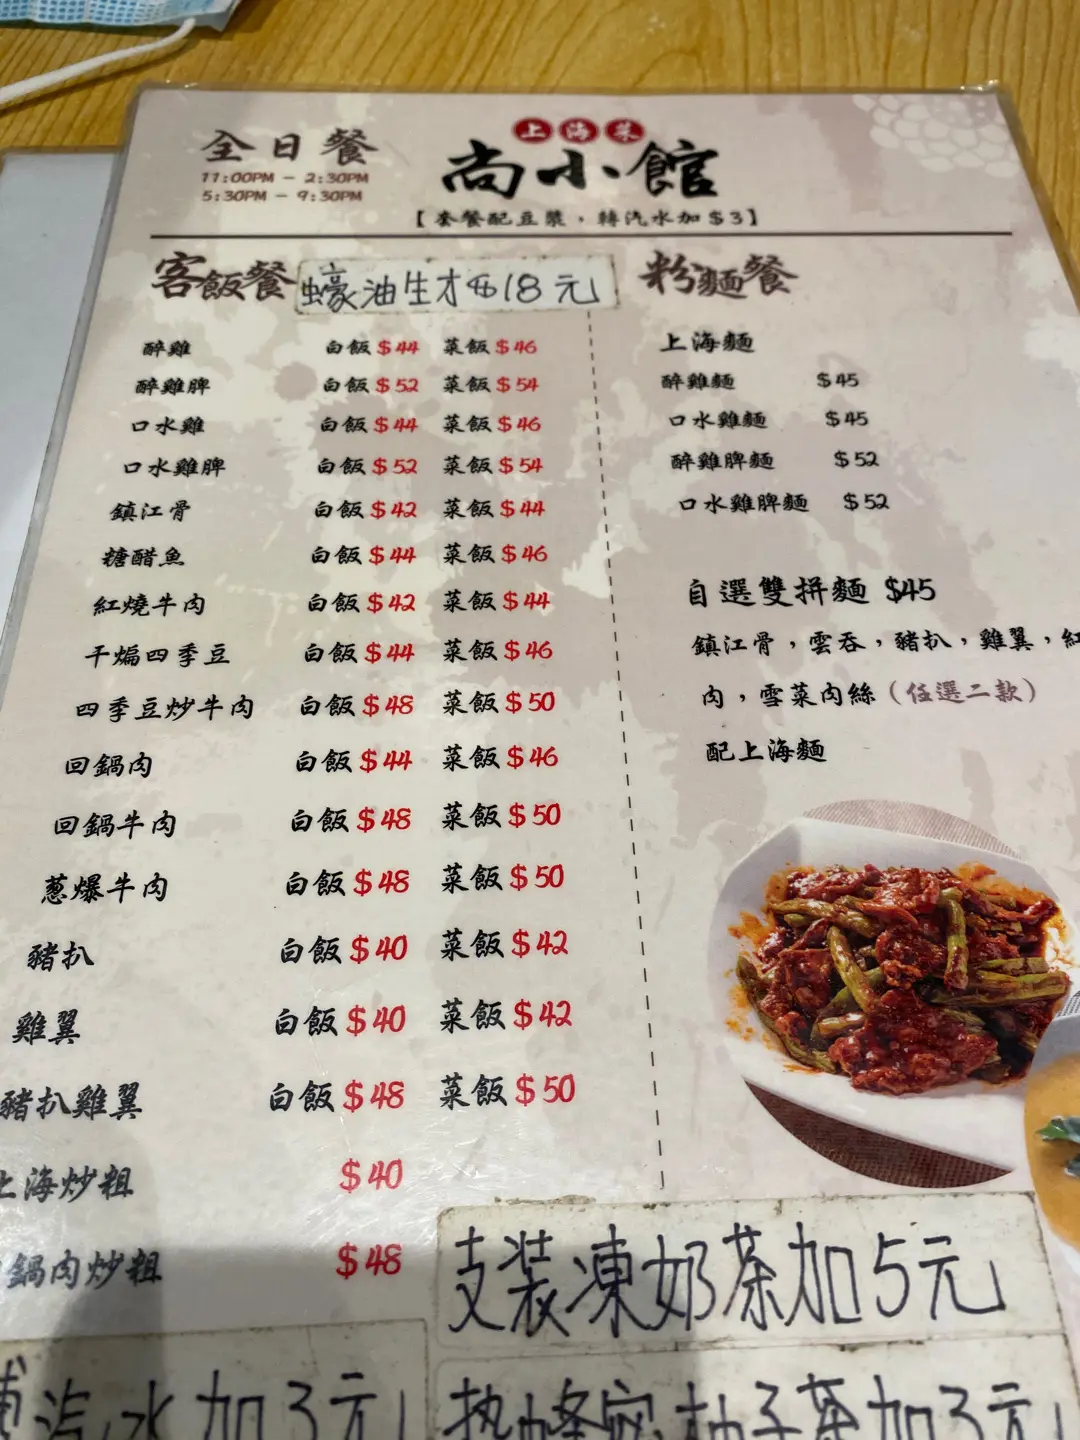 全日餐
11:00PM - 2:30PM
5:30PM - 9:30PM
上海菜
尚小館
【套餐配豆漿,轉汽水加$3】
客飯餐
蠔油生才$18元
醉雞 白飯$44 菜飯$46
醉雞脾 白飯$52 菜飯$54
口水雞 白飯$44 菜飯$46
口水雞脾 白飯$52 菜飯$54
鎮江骨 白飯$42 菜飯$44
糖醋魚 白飯$44 菜飯$46
紅燒牛肉 白飯$42 菜飯$44
干煸四季豆 白飯$44 菜飯$46
四季豆炒牛肉 白飯$48 菜飯$50
回鍋肉 白飯$44 菜飯$46
回鍋牛肉 白飯$48 菜飯$50
蔥爆牛肉 白飯$48 菜飯$50
豬扒 白飯$40 菜飯$42
雞翼 白飯$40 菜飯$42
豬扒雞翼 白飯$48 菜飯$50
上海炒粗 $40
鍋肉炒粗 $48
粉麵餐
上海麵
醉雞麵 $45
口水雞麵 $45
醉雞脾麵 $52
口水雞脾麵 $52
自選雙拼麵 $45
鎮江骨,雲吞,豬扒,雞翼,紅
肉,雪菜肉絲(任選二款)
配上海麵
支装凍奶茶加5元
汽水加3元
热蜂蜜柚子茶加3元